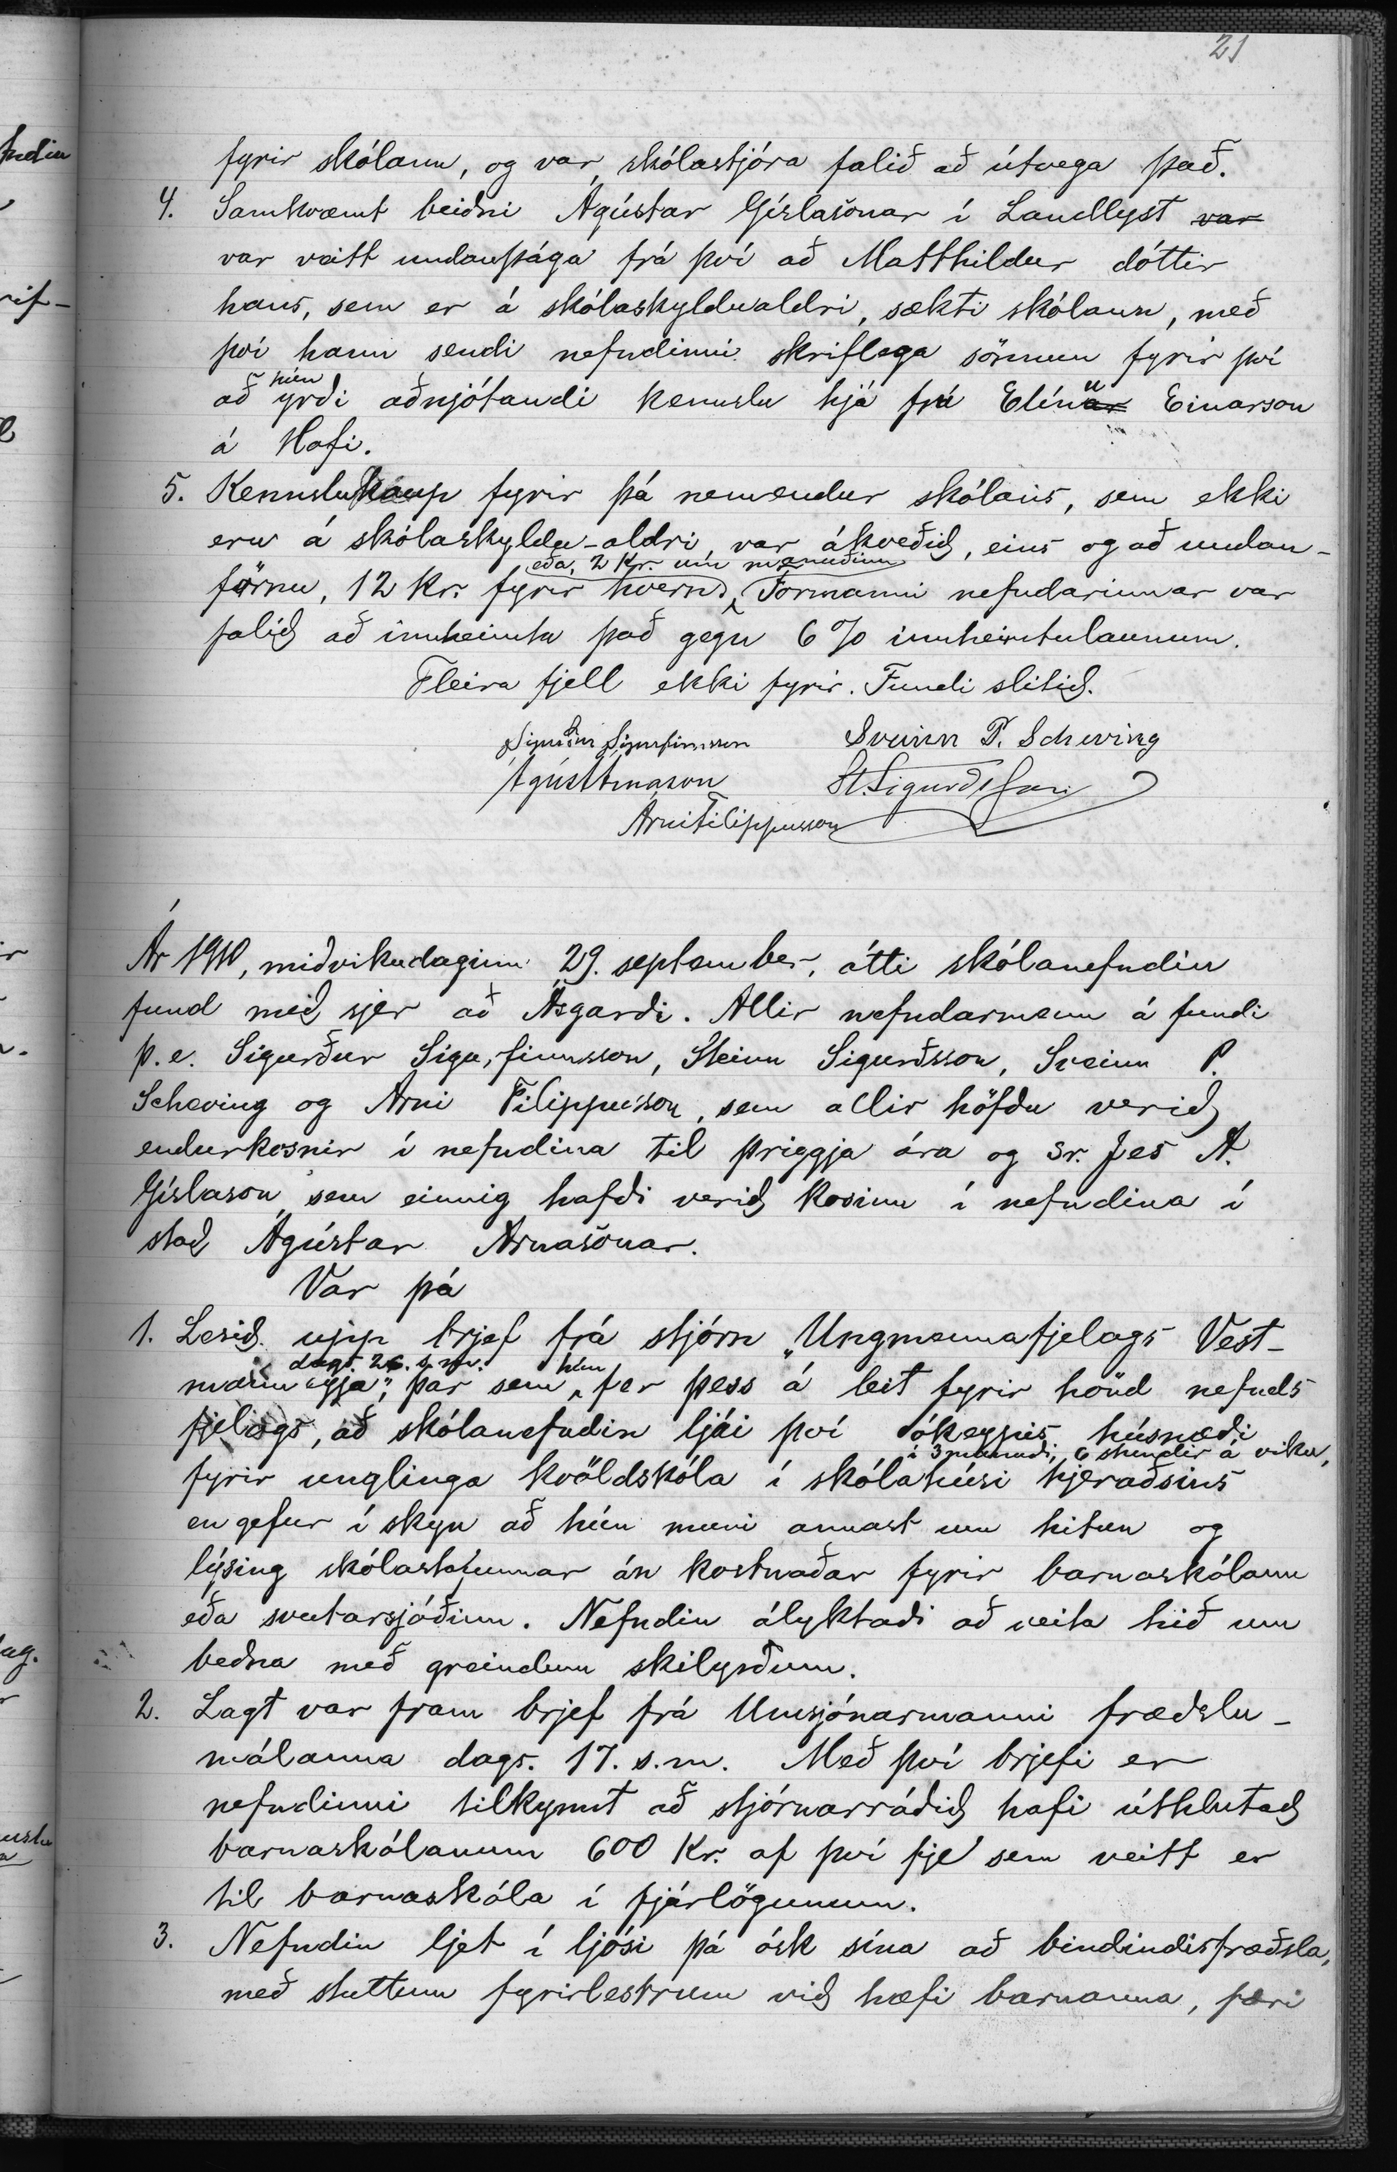 21
fyrir skólann, og var skólastjóra falið að útvega það.
4. Samkvæmt beiðni Ágústar Gíslasonar í Landlyst var
var veitt undanþága frá því að Matthildur dóttir
hans, sem er á skólaskyldualdri, sækti skólann, með
því hann sendi nefndinni skriflega sönnun fyrir því
að hún yrði aðnjótandi kennslu hjá frú Elínu Einarson
á Hofi.
5. Kennslukaup fyrir þá nemendur skólans, sem ekki
eru á skólaskyldu-aldri, var ákveðið, eins og að undan-
förnu, 12 kr. fyrir hvern, eða 2 Kr. um mánuðinn. Formanni nefndarinnar var
falið að innheimta það gegn 6% innheimtulaunum.
Fleira fjell ekki fyrir. Fundi slitið.
Sigurður Sigurfinnsson Sveinn P. Scheving
Ágúst Árnason St. Sigurðsson
Árni Filippusson
Ár 1910, miðvikudaginn 29. september, átti skólanefndin
fund með sjer að Ásgarði. Allir nefndarmenn á fundi
þ.e. Sigurður Sigurfinnsson, Steinn Sigurðsson, Sveinn P.
Scheving og Árni Filippusson, sem allir höfðu verið
endurkosnir í nefndina til þriggja ára og sr. Jes A.
Gíslason sem einnig hafði verið kosinn í nefndina í
stað Ágústar Árnasonar.
Var þá
1. Lesið upp brjef frá stjórn „Ungmennafjelags Vest-
manneyja", dags. 26. þ.m. þar sem hún fer þess á leit fyrir hönd nefnds
fjelags, að skólanefndin ljái því ókeypis húsnæði
í 3 mánuði, 6 stundir á viku,
fyrir unglinga kvöldskóla í skólahúsi hjeraðsins
en gefur í skyn að hún muni annast um hitun og
lýsing skólastofunnar án kostnaðar fyrir barnaskólann
eða sveitarsjóðinn. Nefndin ályktaði að veita hið um
beðna með greindum skilyrðum.
2. Lagt var fram brjef frá Umsjónarmanni fræðslu-
málanna dags. 17. s.m. Með því brjefi er
nefndinni tilkynnt að stjórnarráðið hafi úthlutað
barnaskólanum 600 Kr. af því fje sem veitt er
til barnaskóla í fjárlögunum.
3. Nefndin ljet í ljósi þá ósk sína að bindindisfræðsla,
með stuttum fyrirlestrum við hæfi barnanna, færi